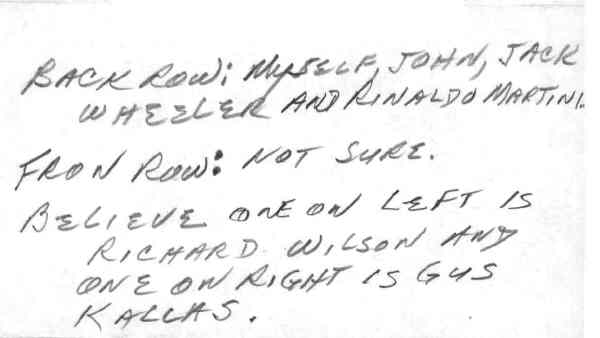 BACK ROW: MYSELF, JOHN, JACK
WHEELER AND RINALDO MARTINI.
FRON ROW: NOT SURE.
BELIEVE ONE ON LEFT IS
RICHARD WILSON AND
ONE ON RIGHT IS GUS
KALLAS.